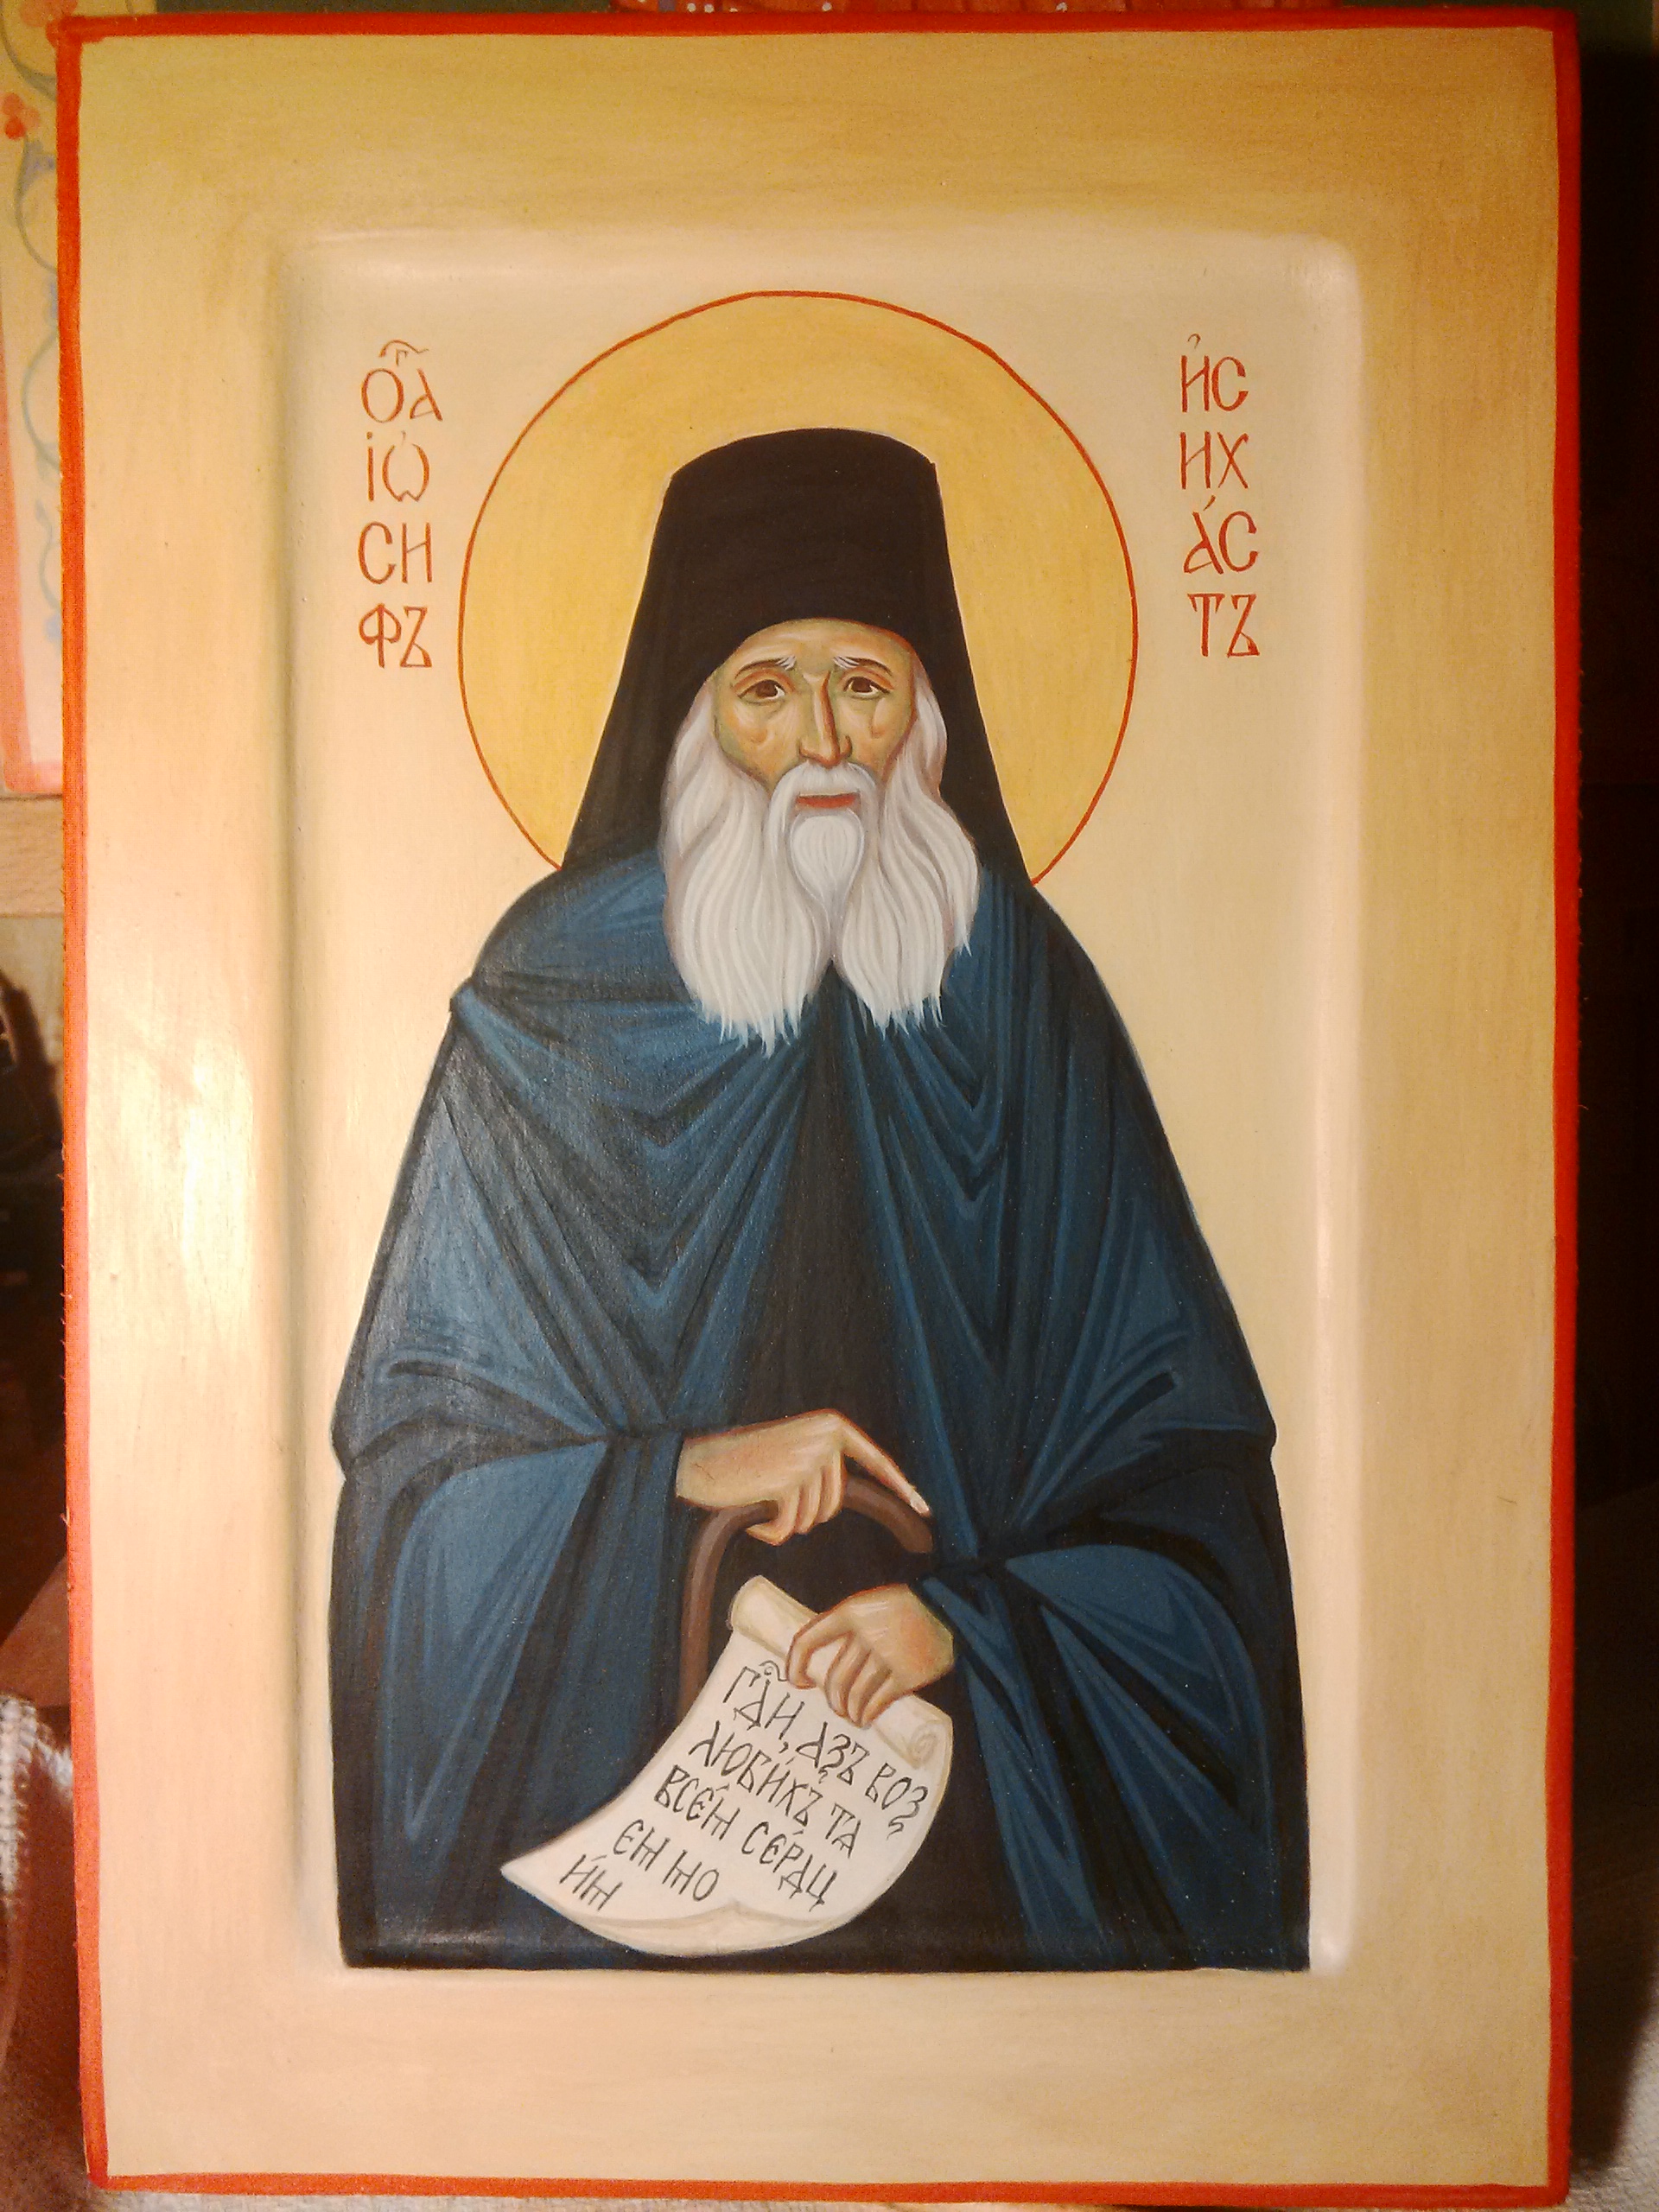 О҆ⷢ҇А
ІѠ҆
СИ
ФЪ
И҆С
ИХ
А́С
ТЪ
ГДⷭ҇И, АЗЪ ВОЗ
ЛЮБИ́ХЪ ТѦ
ВСЕ́М СЕ́РДЦ
ЕМ МО
И́М